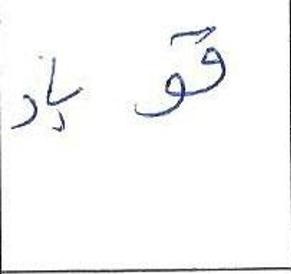 قو باد